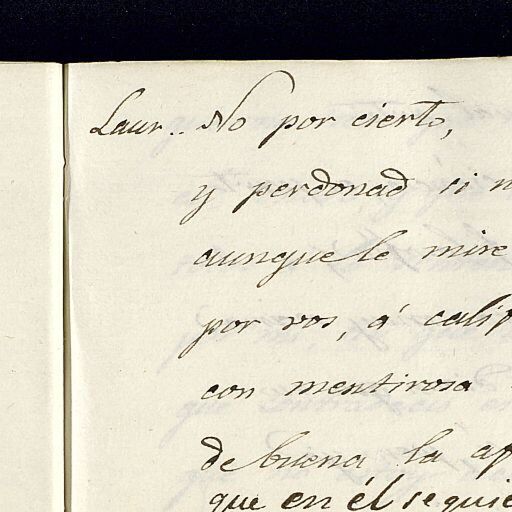 Laur.. No por cierto,
y perdonad si
aunque le mire
por vos, á
con mentirosa
de buena la
que en él seguie